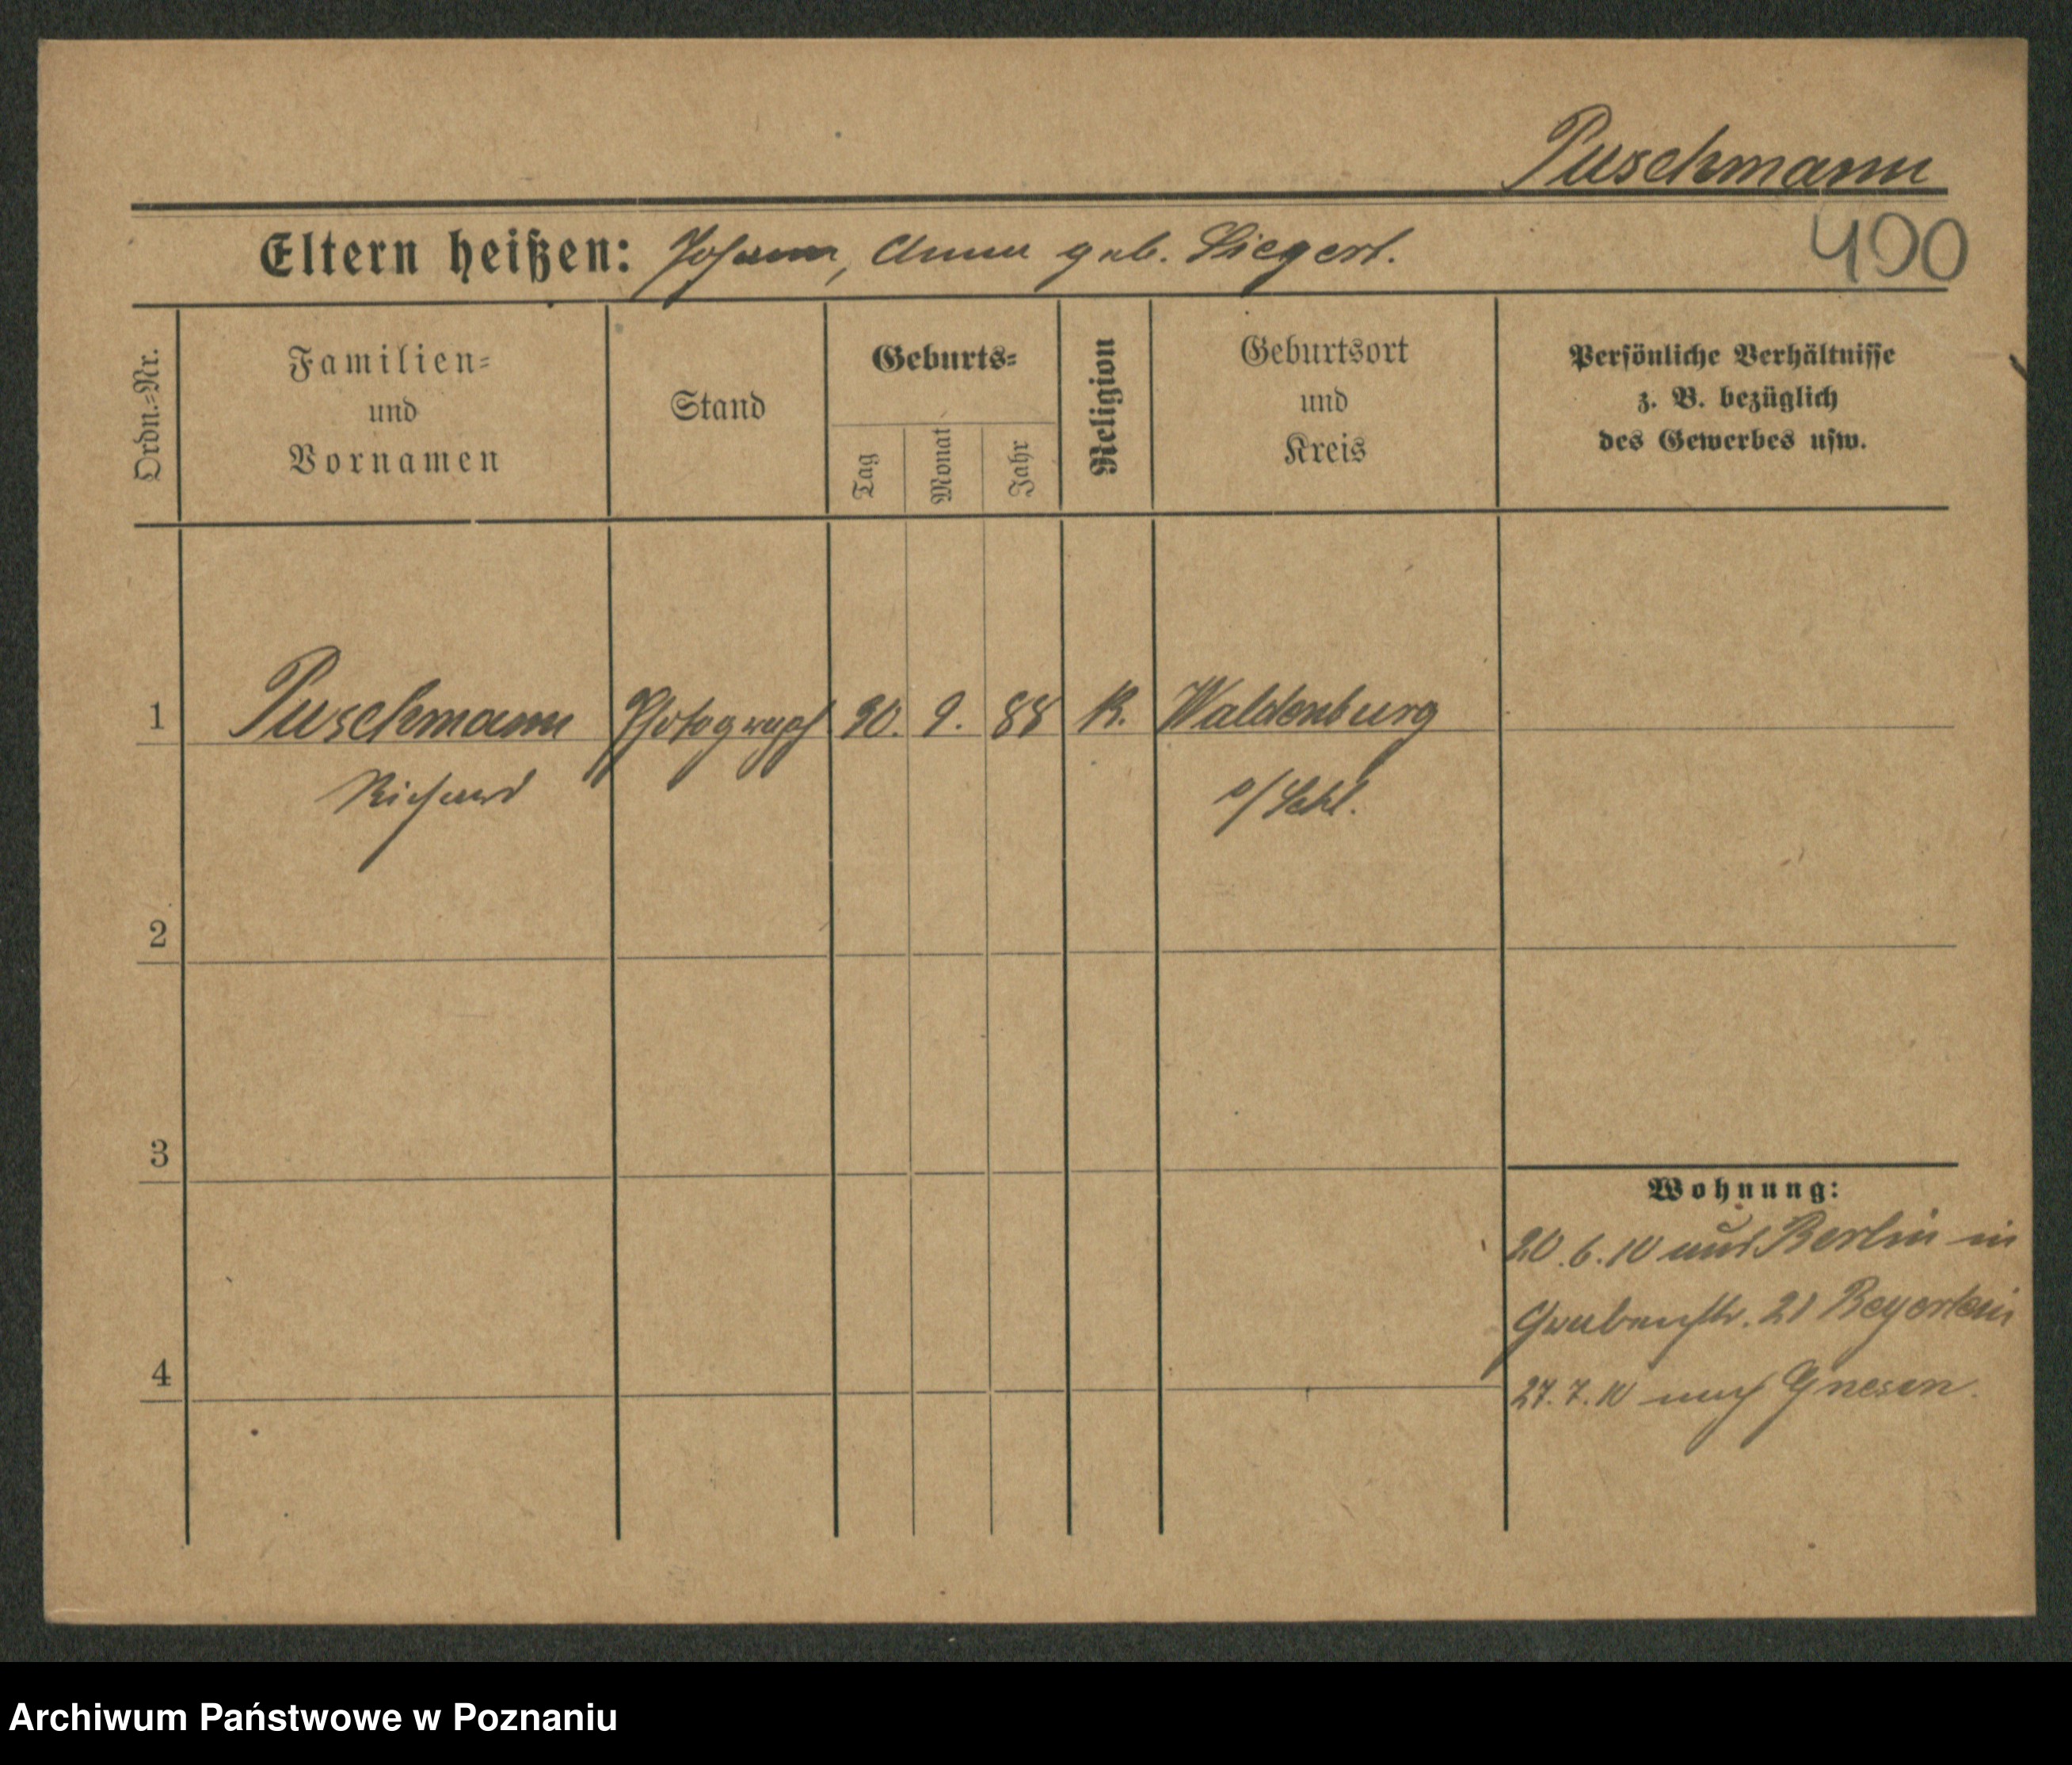 Puschmann
Eltern heißen: Johann, Anna geb. Siegert.
400
Ordn.=Nr.
Familien=
und
Vornamen
Stand
Geburts=
Tag
Monat
Jahr
Religion
Geburtsort
und
Kreis
Persönliche Verhältnisse
z. B. bezüglich
des Gewerbes usw.
1 Puschmann Photograph 30. 9. 88 K. Waldenburg
Richard /Schl.
2
3
Wohnung:
20.6.10 aus Berlin in
Grabenstr. 21 Beyerlein
4
27.7.10 nach Gnesen.
Archiwum Państwowe w Poznaniu